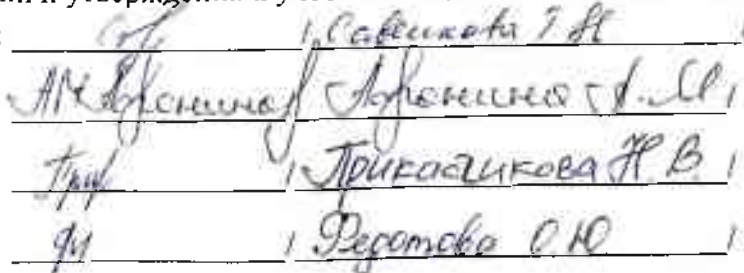 и утверждении
/ Савенкова Т Н /
АМАфонина / Афонина А.М /
/ Приказчикова Н В /
/ Федотова О Ю /